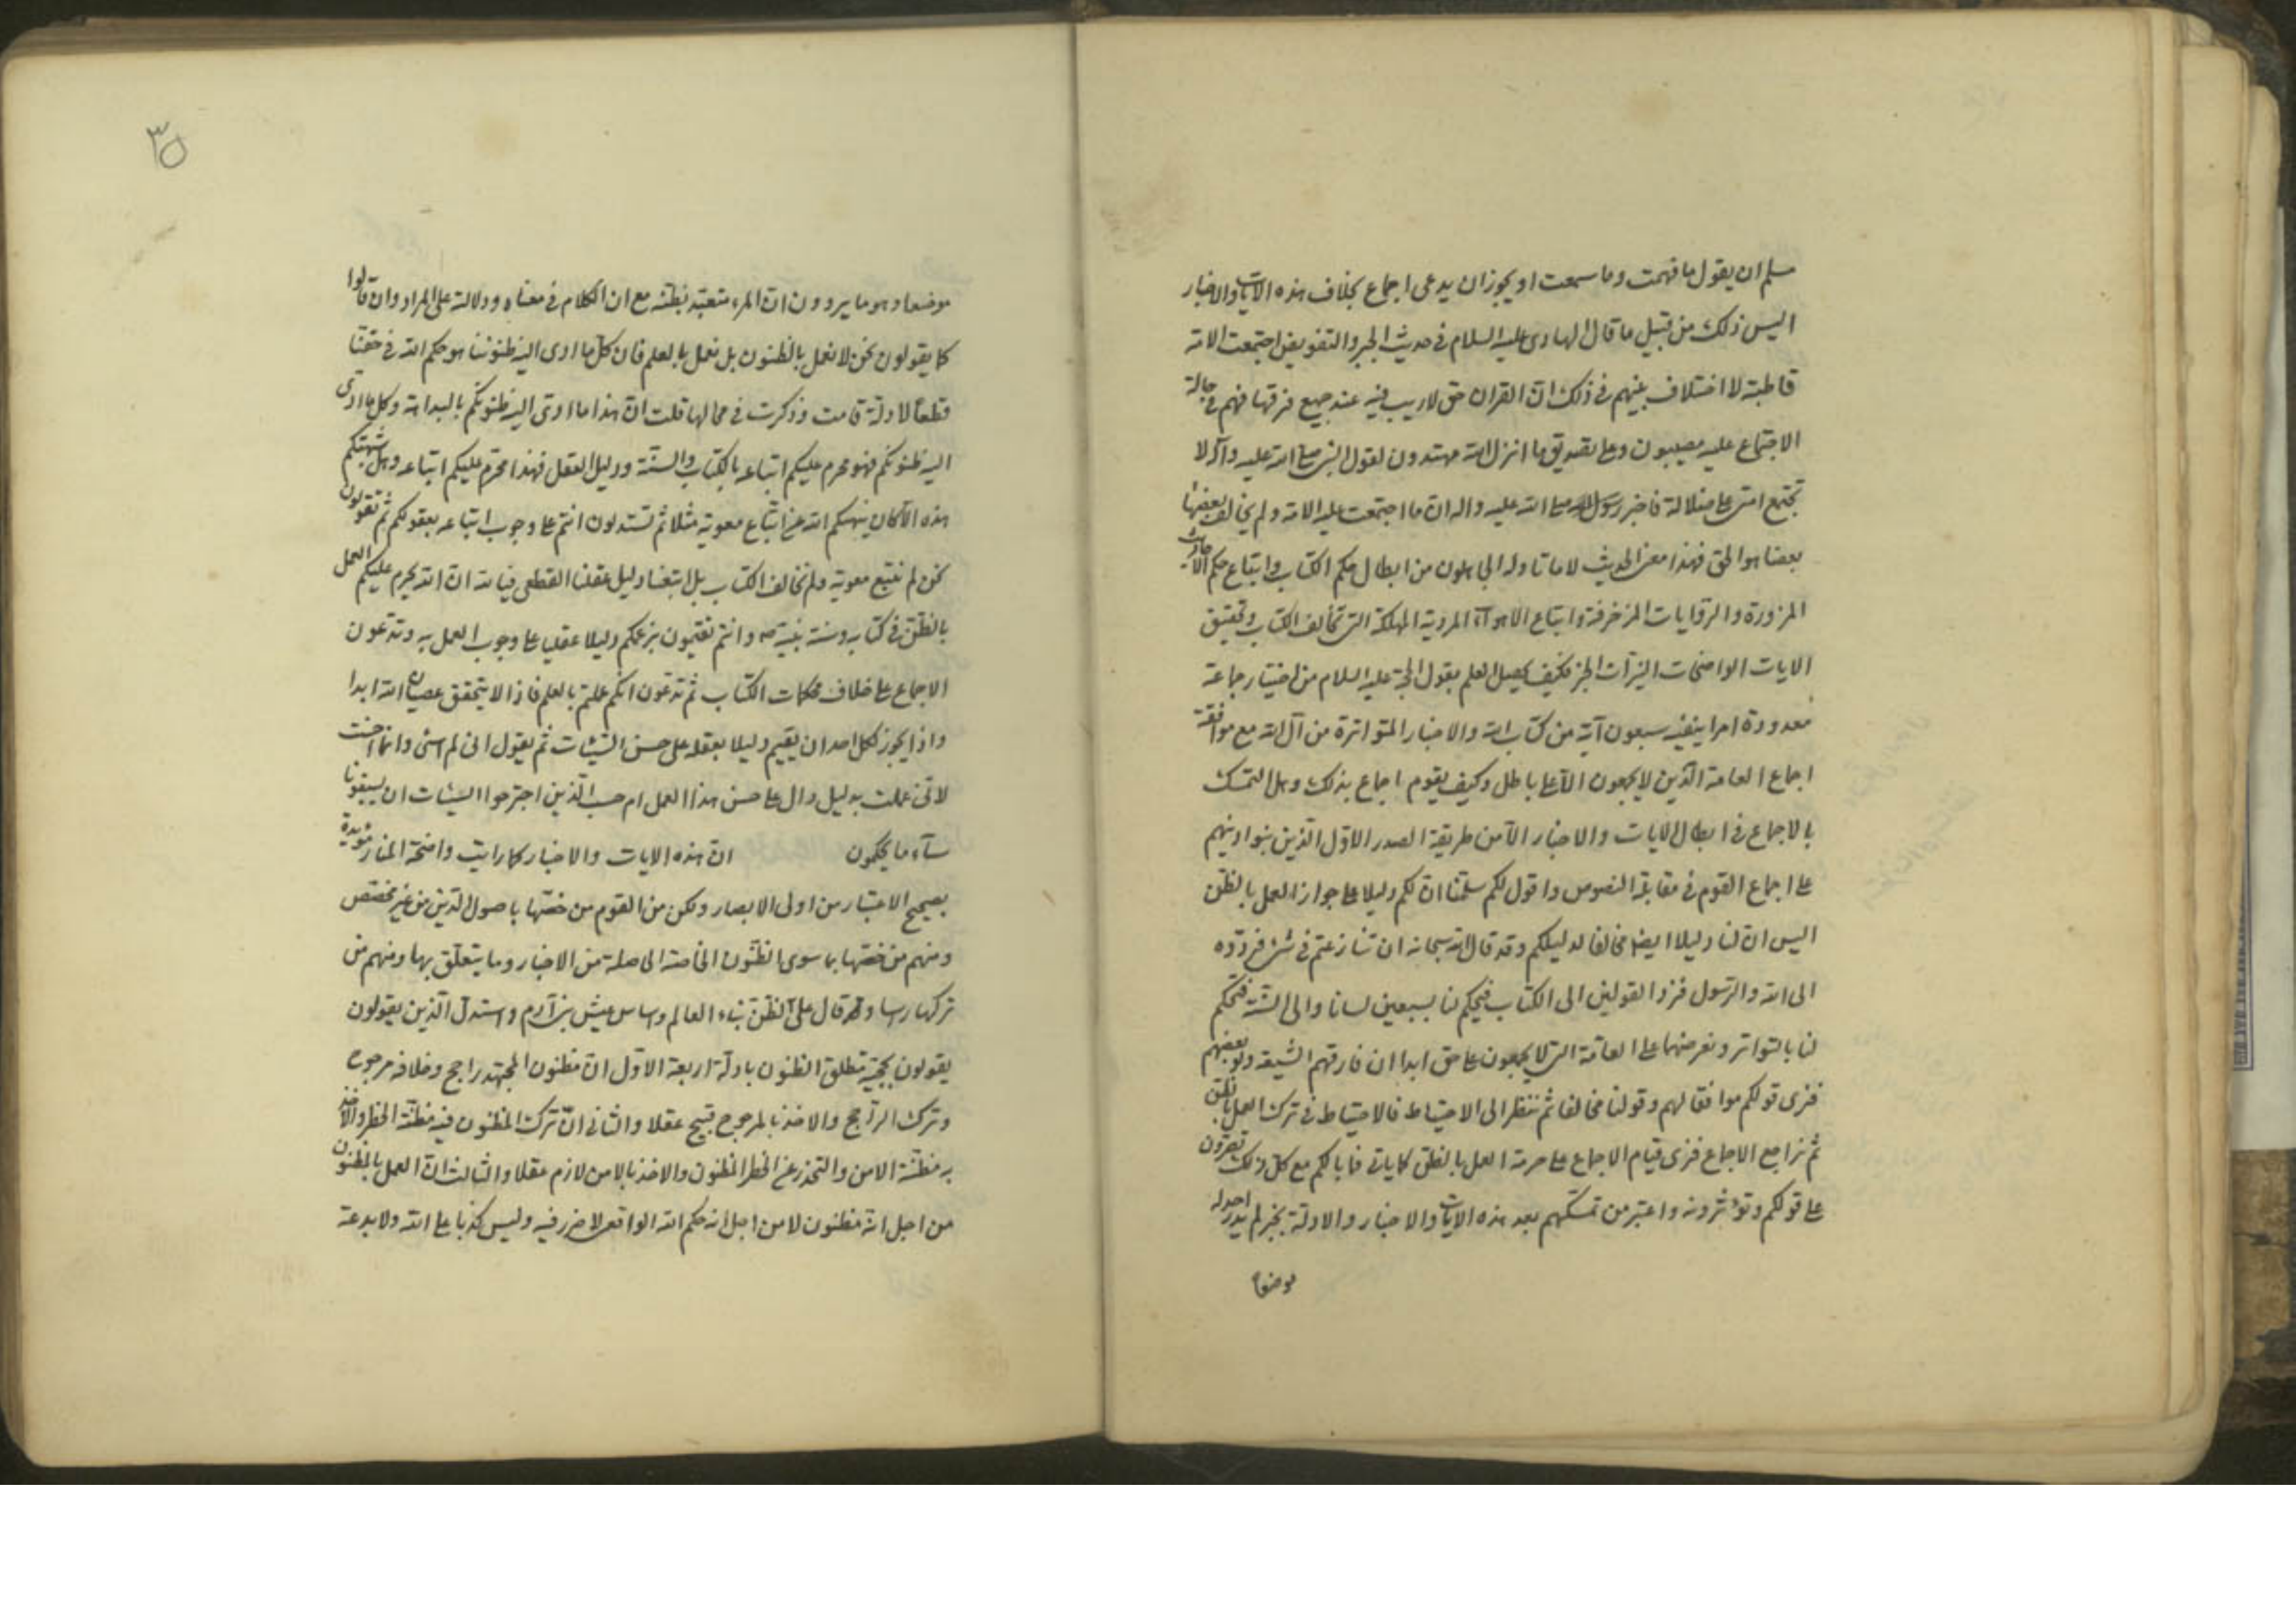 مسلم ان يقول ما فهمت وما سمعت او يجوز ان يدعى اجماع بخلاف هذه الايات والاخبار
اليس ذلك من قبيل ما قال الهادى عليه السلام فى حديث الجبر والتفويض اجتمعت الامة
قاطبة لا اختلاف بينهم فى ذلك ان القران حق لا ريب فيه عند جميع فرقها فهم فى حالة
الاجتماع عليه مصيبون وعلى تصديق ما انزل الله مهتدون لقول النبى صلى الله عليه وآله لا
تجتمع امتى على ضلالة فاخبر رسول الله صلى الله عليه واله ان ما اجتمعت عليه الامة ولم يخالف بعضها
بعضا هو الحق فهذا معنى الحديث لا ما تاوله الجاهلون من ابطال حكم الكتاب واتباع حكم الاحاديث
المزورة والروايات المزخرفة واتباع الاهوآء المردية المهلكة التى تخالف الكتاب وتحقيق
الايات الواضحات النيرات الخبر فكيف يحصل العلم بقول الحجة عليه السلام من اختيار جماعة
معدودة امرا ينفيه سبعون آية من كتاب الله والاخبار المتواترة من آل الله مع موافقة
اجماع العامة الذين لا يجمعون الا على باطل وكيف يقوم اجماع بذلك وهل التمسك
بالاجماع فى ابطال الايات والاخبار الا من طريقة الصدر الاول الذين بنوا دينهم
على اجماع القوم فى مقابلة النصوص واقول لكم سلمنا ان لكم دليلا على جواز العمل بالظن
اليس ان لنا دليلا ايضا مخالفا لدليلكم وقد قال الله سبحانه ان تنازعتم فى شئ فردوه
الى الله والرسول فنرد القولين الى الكتاب فيحكم لنا بسبعين لسانا والى السنة فتحكم
لنا بالتواتر ونعرضهما على العامة التى لا يجمعون على حق ابدا ان فارقتهم الشيعة ولو بعضهم
فنرى قولكم موافقا لهم وقولنا مخالفا ثم ننظر الى الاحتياط فالاحتياط فى ترك العمل بالظن
ثم نراجع الاجماع فنرى قيام الاجماع على حرمة العمل بالظن كما ياتى فما بالكم مع كل ذلك تصرون
على قولكم وتؤثرونه واعتبر من تمسكهم بعد هذه الايات والاخبار والادلة بخبر لم يدر احد له
موضعا
٣٥
موضعا وهو ما يروون ان المرء متعبد بظنه مع ان الكلام فى معناه ودلالته على المراد وان قالوا
كما يقولون نحن لا نعمل بالظنون بل نعمل بالعلم فان كل ما ادى اليه ظنوننا هو حكم الله فى حقنا
قطعا لادلة قامت وذكرت فى محالها قلت ان هذا ما ادى اليه ظنونكم بالبداهة وكل ما ادى
اليه ظنونكم فهو محرم عليكم اتباعه بالكتاب والسنة ودليل العقل فهذا محرم عليكم اتباعه وهل شبهتكم
هذه الا كان ينهيكم الله عن اتباع معوية مثلا ثم تستدلون انتم على وجوب اتباعه بعقولكم ثم تقولون
نحن لم نتبع معوية ولم نخالف الكتاب بل اتبعنا دليل عقلنا القطعى فيالله ان الله يحرم عليكم العمل
بالظن فى كتابه وسنة نبيه ص وانتم تقيمون بزعمكم دليلا عقليا على وجوب العمل به وتدعون
الاجماع على خلاف محكمات الكتاب ثم تدعون انكم عملتم بالعلم فاذا لا يتحقق عصيان الله ابدا
واذا يجوز لكل احد ان يقيم دليلا بعقله على حسن السيئات ثم يقول انى لم اسئ وانما احسنت
لانى عملت بدليل دال على حسن هذا العمل ام حسب الذين اجترحوا السيئات ان يسبقونا
سآء ما يحكمون ان هذه الايات والاخبار كما رايت واضحة المنار مؤيدة
بصحيح الاعتبار من اولى الابصار ولكن من القوم من خصها باصول الدين من غير مخصص
ومنهم من خصها بما سوى الظنون الخاصة الحاصلة من الاخبار وما يتعلق بها ومنهم من
تركها راسا وقال على الظن بناء العالم واساس عيش بنى آدم واستدل الذين يقولون
يقولون بحجية مطلق الظنون بادلة اربعة الاول ان مظنون المجتهد راجح وخلافه مرجوح
وترك الراجح والاخذ بالمرجوح قبيح عقلا والثانى ان ترك المظنون فيه مظنة الخطر والاخذ
به مظنة الامن والتحذر عن الخطر المظنون والاخذ بالامن لازم عقلا والثالث ان العمل بالمظنون
من اجل انه مظنون لا من اجل انه حكم الله الواقعى لا ضرر فيه وليس كذبا على الله ولا بدعة